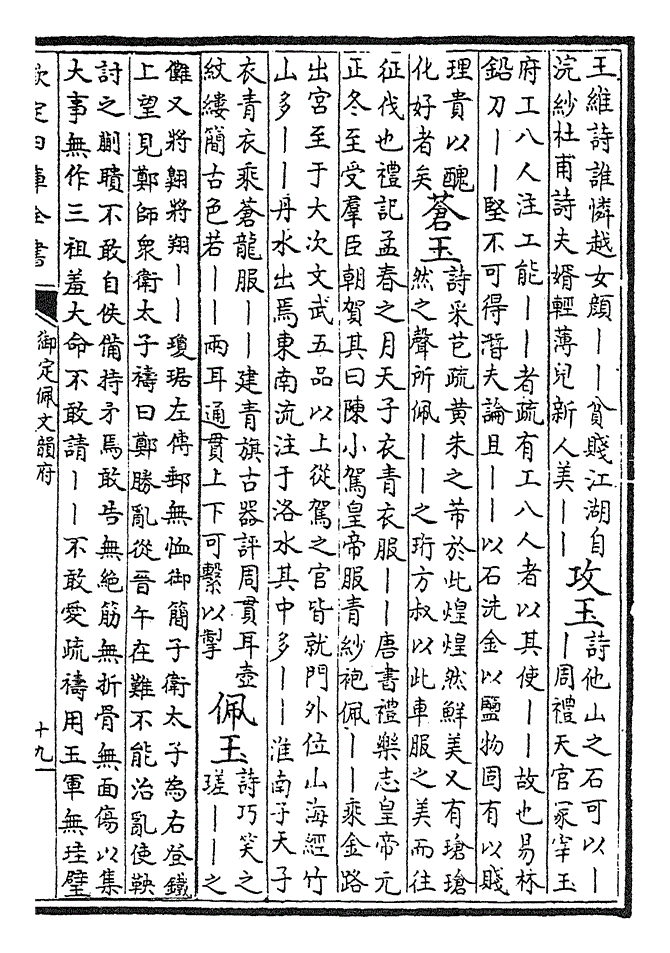 王維詩誰憐越女顔||貧賤江湖自
浣紗杜甫詩夫婿輕薄兒新人美||
攻玉
詩他山之石可以|
|周禮天官冢宰玉
府工八人注工能||者疏有工八人者以其使||故也易林
鉛刀||堅不可得潛夫論且||以石洗金以鹽物固有以賤
理貴以醜
化好者矣
蒼玉
詩采芑疏黄朱之芾於此煌煌然鮮美又有瑲瑲
然之聲所佩||之珩方叔以此車服之美而往
征伐也禮記孟春之月天子衣青衣服||唐書禮樂志皇帝元
正冬至受羣臣朝賀其日陳小駕皇帝服青紗袍佩||乘金路
出宫至于大次文武五品以上從駕之官皆就門外位山海經竹
山多||丹水出焉東南流注于洛水其中多||淮南子天子
衣青衣乘蒼龍服||建青旗古器評周貫耳壺
紋縷簡古色若||兩耳通貫上下可繫以挈
佩玉
詩巧笑之
瑳||之
儺又將翺將翔||瓊琚左傳郵無恤御簡子衛太子為右登鐵
上望見鄭師衆衛太子禱曰鄭勝亂從晉午在難不能治亂使鞅
討之蒯聵不敢自佚備持矛焉敢告無絶筋無折骨無面傷以集
大事無作三祖羞大命不敢請||不敢愛疏禱用玉軍無珪璧
欽定四庫全書
御定佩文韻府
十九